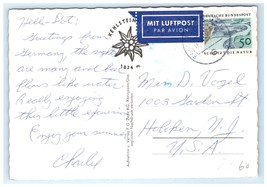 Hello Dot:
Greetings from
Germany the sights
are many and beer
flows like water.
Really enjoying
this little experience
Enjoy your summer
Charlie
KEHLSTEIN
1834 m
MIT LUFTPOST
PAR AVION
DEUTSCHE BUNDESPOST
50
SCHÜTZT DIE NATUR
Miss D. Vogel
1003 Garden St
Hoboken, N.J.
U.S.A.
60